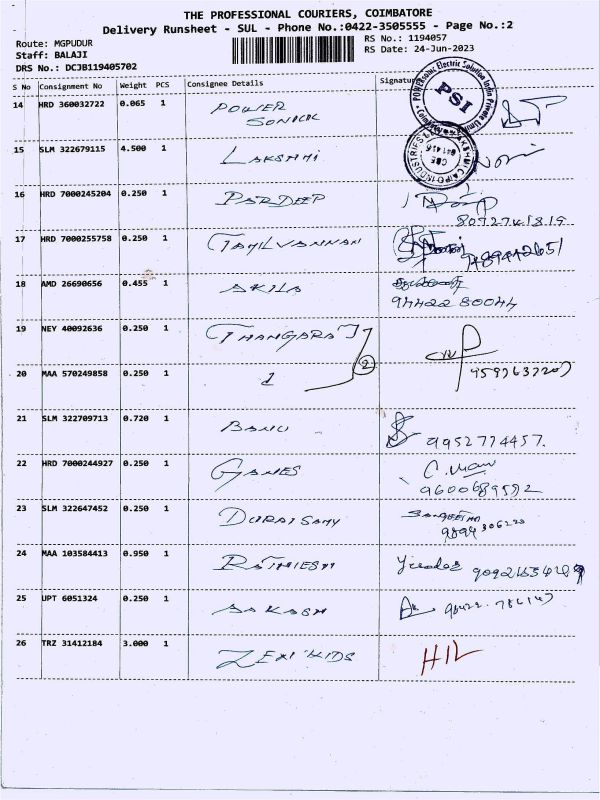 THE PROFESSIONAL COURIERS, COIMBATORE
Delivery Runsheet - SUL - Phone No.:0422-3505555 - Page No.:2
Route: MGPUDUR
RS No.: 1194057
Staff: BALAJI
RS Date: 24-Jun-2023
DRS No.: DCJB119405702
S No Consignment No Weight PCS Consignee Details Signature
14 HRD 360032722 0.065 1 POWER
SONICK
POWERsonic Electric Solution India Private Limited
PSI
15 SLM 322679115 4.500 1 LAKSHMI
CBE
641 416
16 HRD 7000245204 0.250 1 PARDEEP
17 HRD 7000255758 0.250 1 TAMILVANNAN
9489442651
18 AMD 26690656 0.455 1 AKILA
94422 80044
19 NEY 40092636 0.250 1 THANGARAJ
2
20 MAA 570249858 0.250 1
21 SLM 322709713 0.720 1 BANU
9952774457.
22 HRD 7000244927 0.250 1 GANES
9600689592
23 SLM 322647452 0.250 1 DURAISAMY
SANGEETHA
9894306220
24 MAA 103584413 0.950 1 RATHIESH
25 UPT 6051324 0.250 1 AAKASH
26 TRZ 31412184 3.000 1 ZEMI KIDS